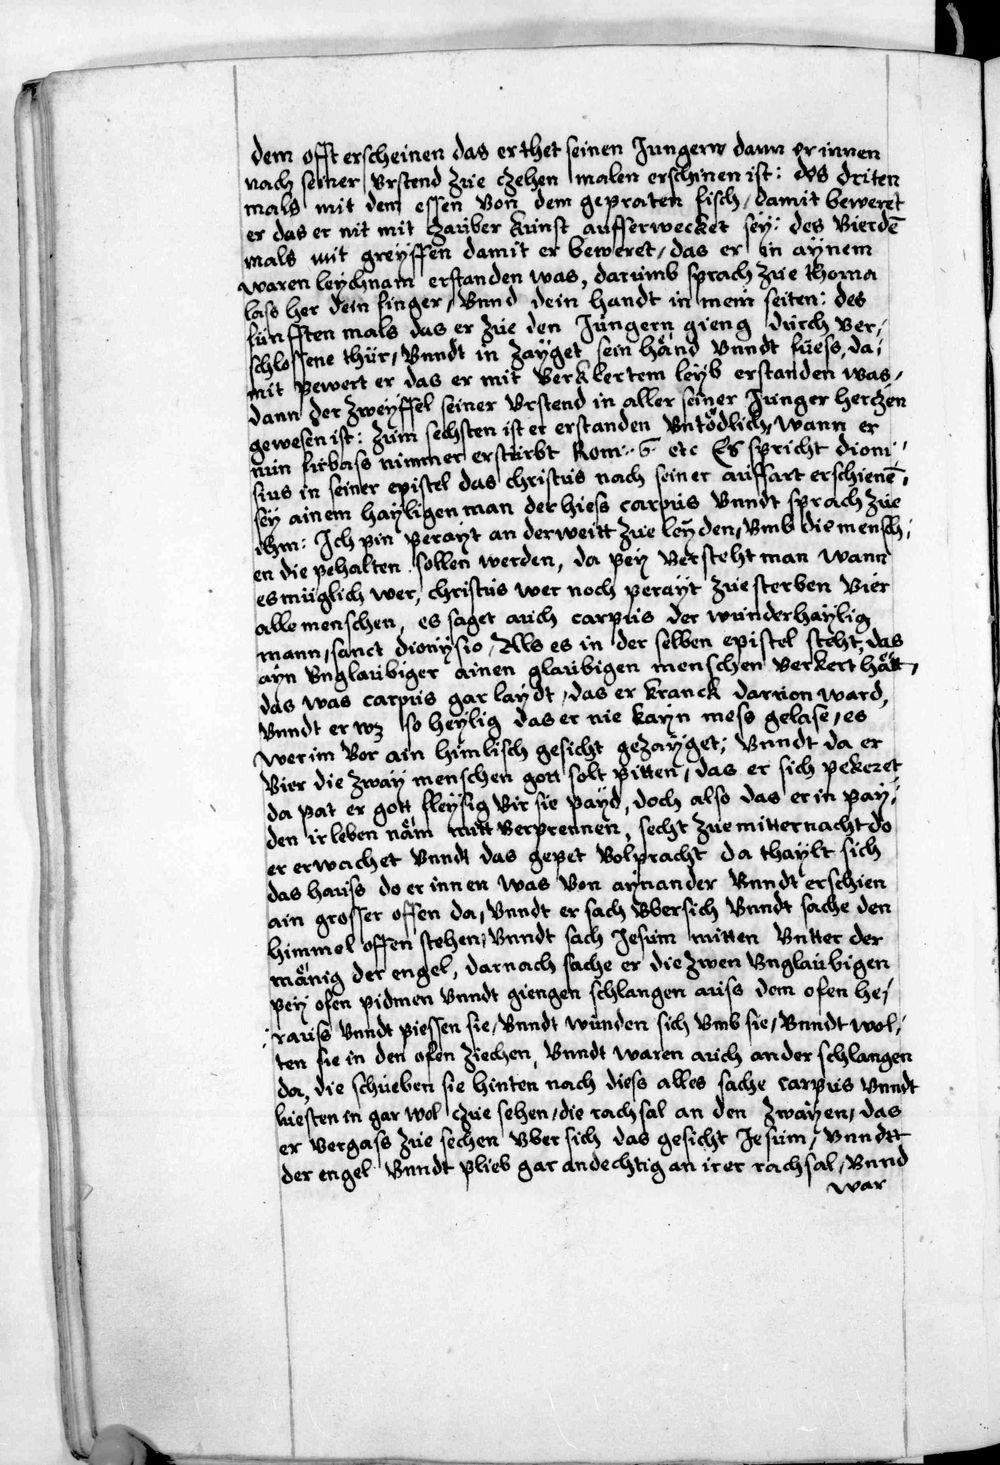 dem offt erscheinen das er thet seinen Jungern dann er innen
nach seiner Vrstend zue czehen malen erschinen ist: des driten
mals mit dem essen Von dem gepraten fisch, damit beweret
er das er nit mit zauber kunst aufferwecket sey: des Vierdē
mals mit greyffen damit er beweret, das er in aynem
waren leychnam erstanden was, darumb sprach zue thoma
lass her dein finger, Vnnd dein handt in mein seiten: des
funfften mals das er zue den Jungern gieng durch Ver,
schlossene thür, Vnndt in zayget sein händ Vnndt füess, da,
mit pewert er das er mit Verklertem leyb erstanden was,
dann der zweyffel seiner Vrstend in aller seiner Junger herczen
gewesen ist: zum sechsten ist er erstanden Vntödlich, wann er
nun fürbass nimmer ersturbt Rom: 6 etc Es spricht dioni,
sius in seiner epistel das christus nach seiner auffart erschienē,
sey ainem hayligen man der hiess carpus Vnndt sprach zue
ihm: Ich pin perayt anderweitt zue leyden, Vmb die mensch,
en die pehalten sollen werden, da pey Versteht man wann
es müglich wer, christus wer noch perayt zue sterben Vier
alle menschen, es saget auch carpus der wunderhaylig
mann, sanct dionysio, Als es in der selben epistel steht, das
ayn Vnglaubiger ainen glaubigen menschen Verkert hätt,
das was carpus gar laydt, das er kranck daruon ward,
Vnndt er wz so heylig das er nie kayn mess gelase, es
wer im Vor ain himlisch gesicht gezayget; Vnndt da er
Vier die zway menschen gott solt pitten, das er sich pekeret
da pat er gott fleysig Vir sie payd, doch also das er in pay,
den ir leben näm mitt Verprennen, secht zue mitternacht do
er erwachet Vnndt das gepet Volpracht da thaylt sich
das hauss do er innen was Von aynander Vnndt erschien
ain grosser offen da, Vnndt er sach Vbersich Vnndt sache den
himmel offen stehen, Vnndt sach Jesum mitten Vntter der
mänig der engel, darnach sache er die zwen Vnglaubigen
pey ofen pidmen Vnndt giengen schlangen auss dem ofen he,
rauss Vnndt piessen sie, Vnndt wunden sich Vmb sie, Vnndt wol,
ten sie in den ofen ziechen, Vnndt waren auch ander schlangen
da, die schueben sie hinten nach diess alles sache carpus Vnndt
luesten in gar wol czue sehen, die rachsal an den zwayen, das
er Vergass zue sechen Vber sich das gesicht Jesum, Vnndtt
der engel Vnndt plieb gar andechtig an irer rachsal, Vnnd
war